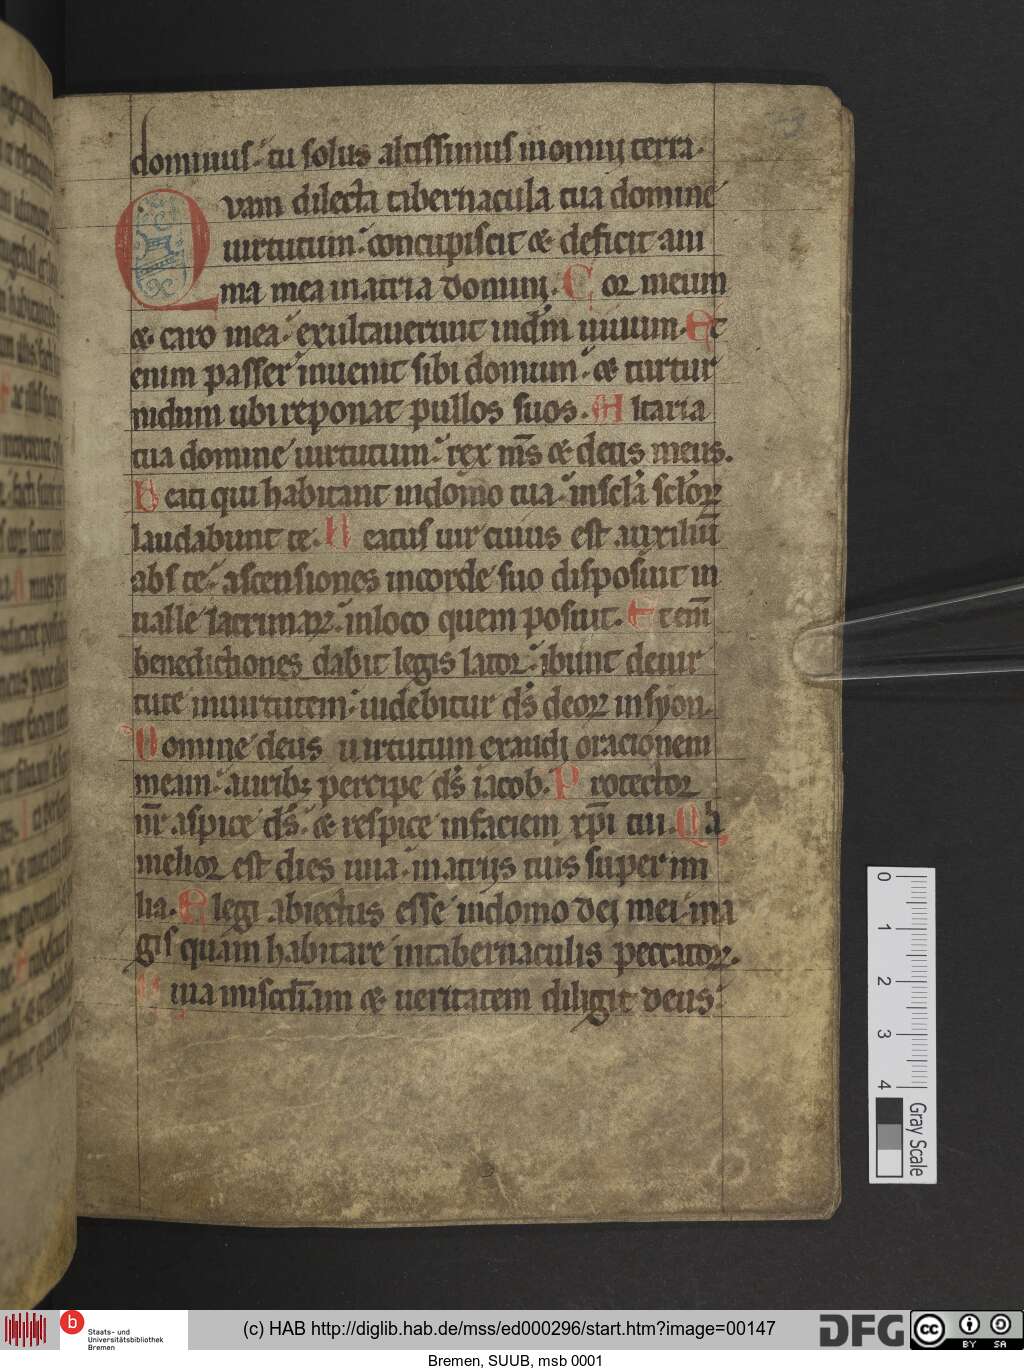 dominus. tu solus altissimus inomni terra.
Quam dilecta tabernacula tua domine
uirtutum. concupiscit & deficit ani
ma mea inatria domini. Cor meum
& caro mea. exultauerunt indm̄ uiuum. Et
enim passer inuenit sibi domum. & turtur
nidum ubi reponat pullos suos. Altaria
tua domine uirtutum. rex ms̄ & deus meus.
Beati qui habitant indomo tua. inscl̄a scl̄oꝝ
laudabunt te. Beatus uir cuius est auxiliū
abs te. ascensiones incorde suo disposuit in
ualle lacrimaꝝ. inloco quem posuit. Etem̄
benedictiones dabit legis lator. ibunt deuir
tute inuirtutem. uidebitur ds̄ deoꝝ insyon.
Domine deus uirtutum exaudi orationem
meam. auribꝫ percipe ds̄ iacob. Protector
nr̄ aspice ds̄. & respice infaciem xp̄i tui. Qā
melior est dies una. inatrijs tuis super mi
lia. Elegi abiectus esse indomo dei mei. ma
gis quam habitare intabernaculis peccatoꝝ.
Quia misc̄di̅am & ueritatem diligit deus
0
1
2
3
4
Gray Scale
b
Staats- und
Universitätsbibliothek
Bremen
(c) HAB http://diglib.hab.de/mss/ed000296/start.htm?image=00147
DFG
cc
BY SA
Bremen, SUUB, msb 0001